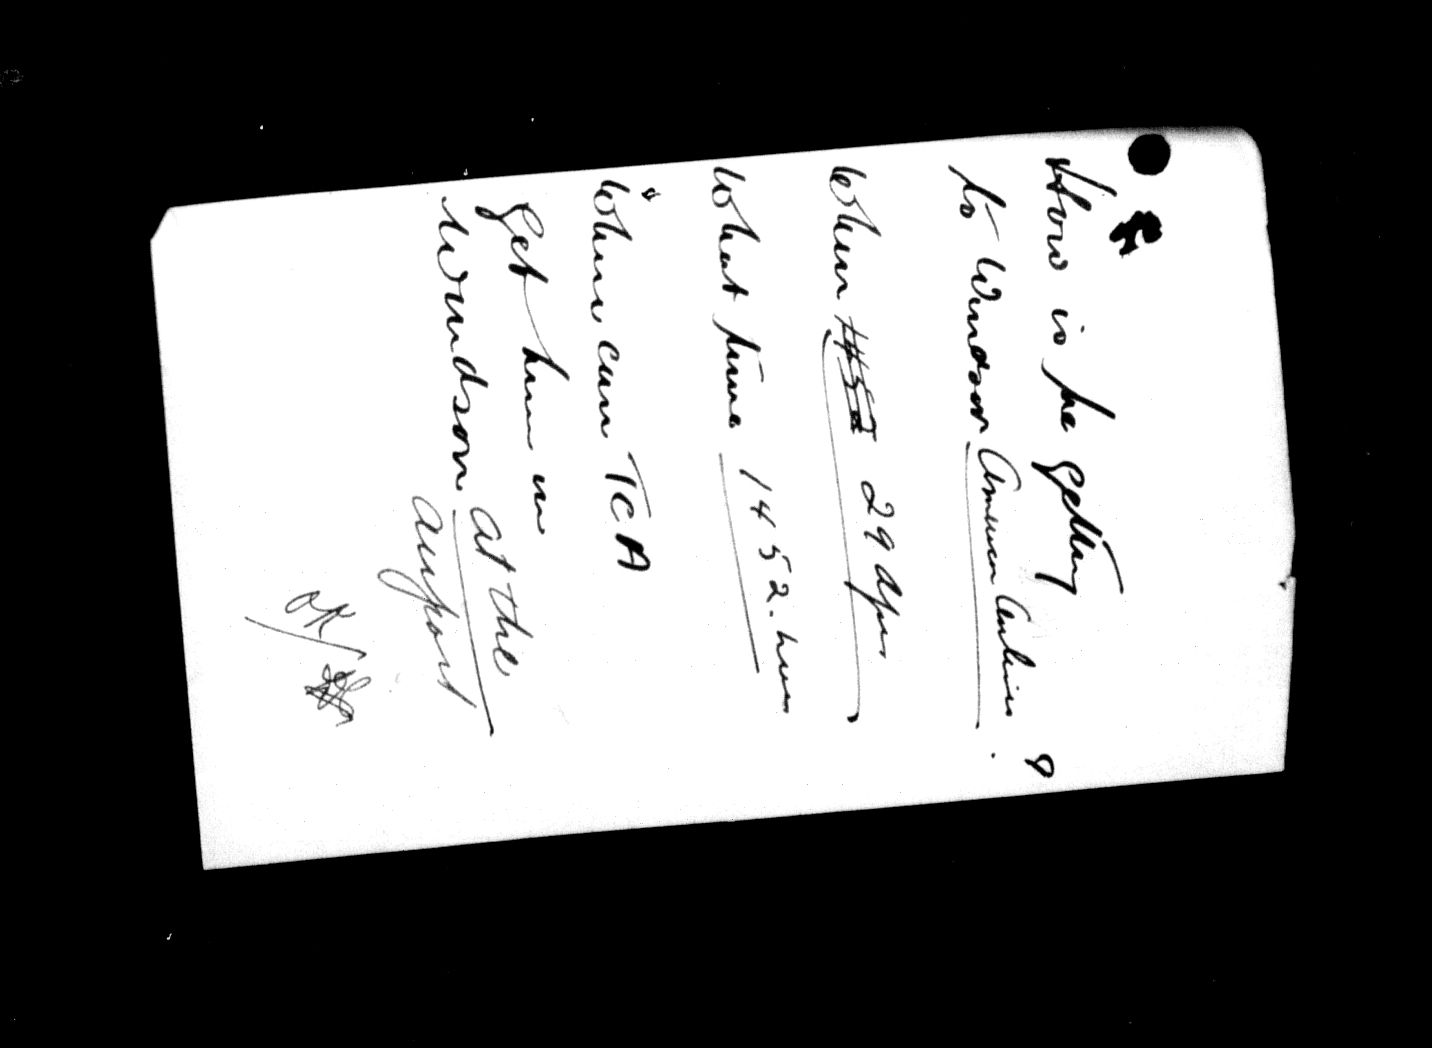 How is he getting ?
to Windsor American Airlines.
When 1452 29 Apr.
What time 1452. hrs
Where can TCA
Get him in
Windsor at the
airport
OK/